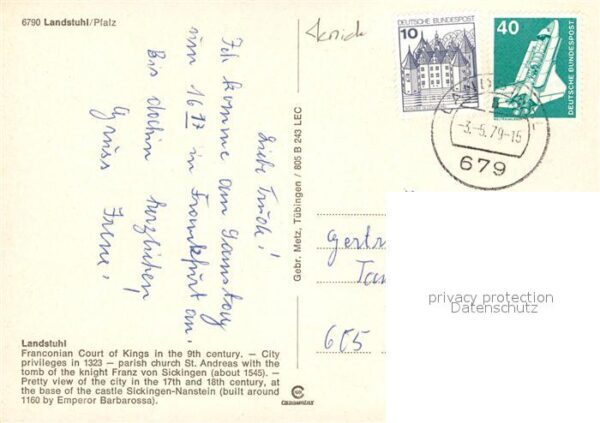 6790 Landstuhl/Pfalz
Liebe Trude!
Ich komme am Samstag
um 16 in Frankfurt an.
Bis dahin herzlichen
Gruss Irene!
Gebr. Metz, Tübingen / 805 B 243 LEC
10
DEUTSCHE BUNDESPOST
40
DEUTSCHE BUNDESPOST
-3.-5.79-15
679
Gertr
605
privacy protection
Datenschutz
Landstuhl
Franconian Court of Kings in the 9th century. — City
privileges in 1323 — parish church St. Andreas with the
tomb of the knight Franz von Sickingen (about 1545). —
Pretty view of the city in the 17th and 18th century, at
the base of the castle Sickingen-Nanstein (built around
1160 by Emperor Barbarossa).